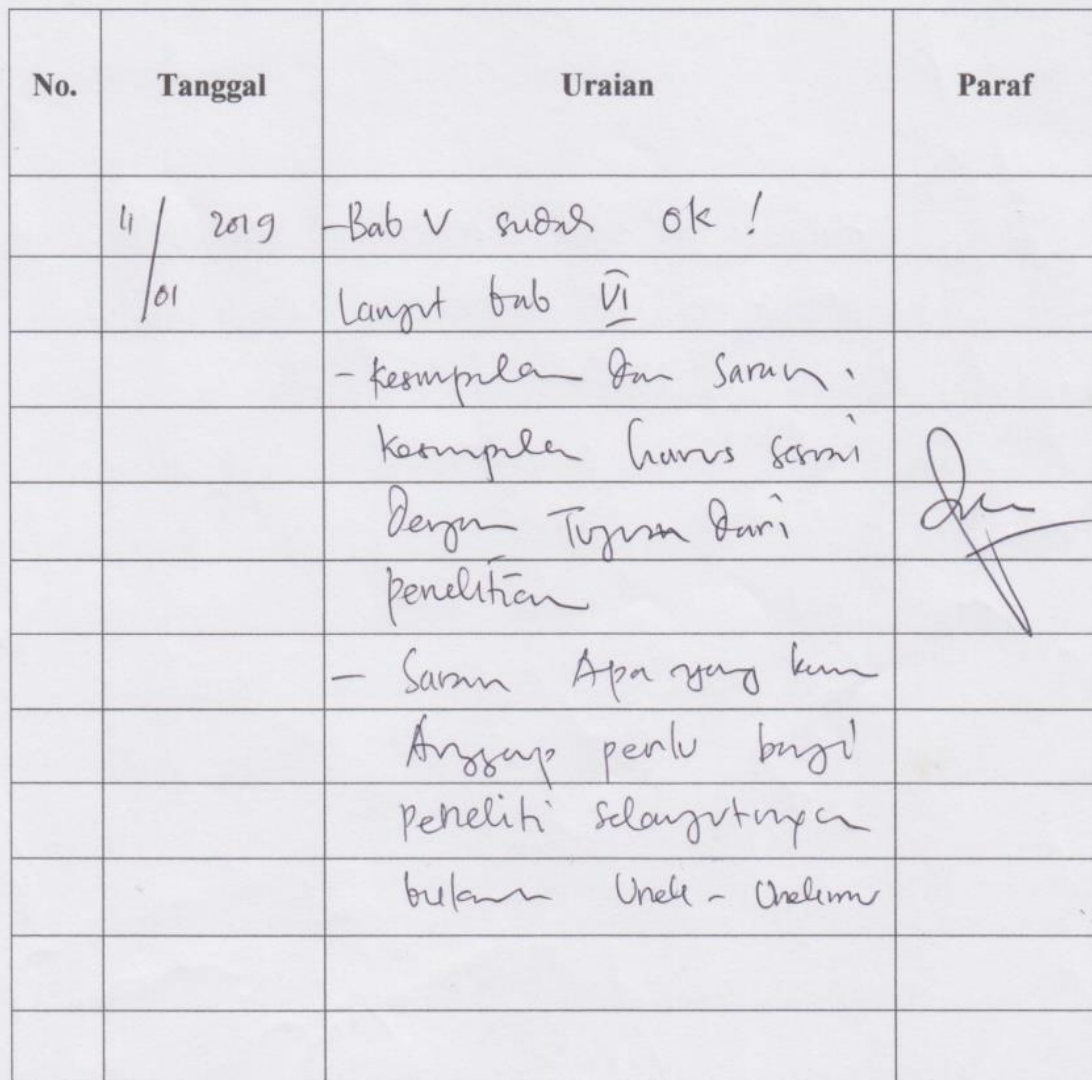 No. Tanggal Uraian Paraf
4/01 2019 -Bab V sudah ok !
Lanjut bab VI
- Kesimpulan dan Saran.
Kesimpulan harus sesuai
Dengan Tujuan dari
penelitian
- Saran Apa yang kamu
Anggap perlu bagi
peneliti selanjutnya
bukan Unek - Unekmu